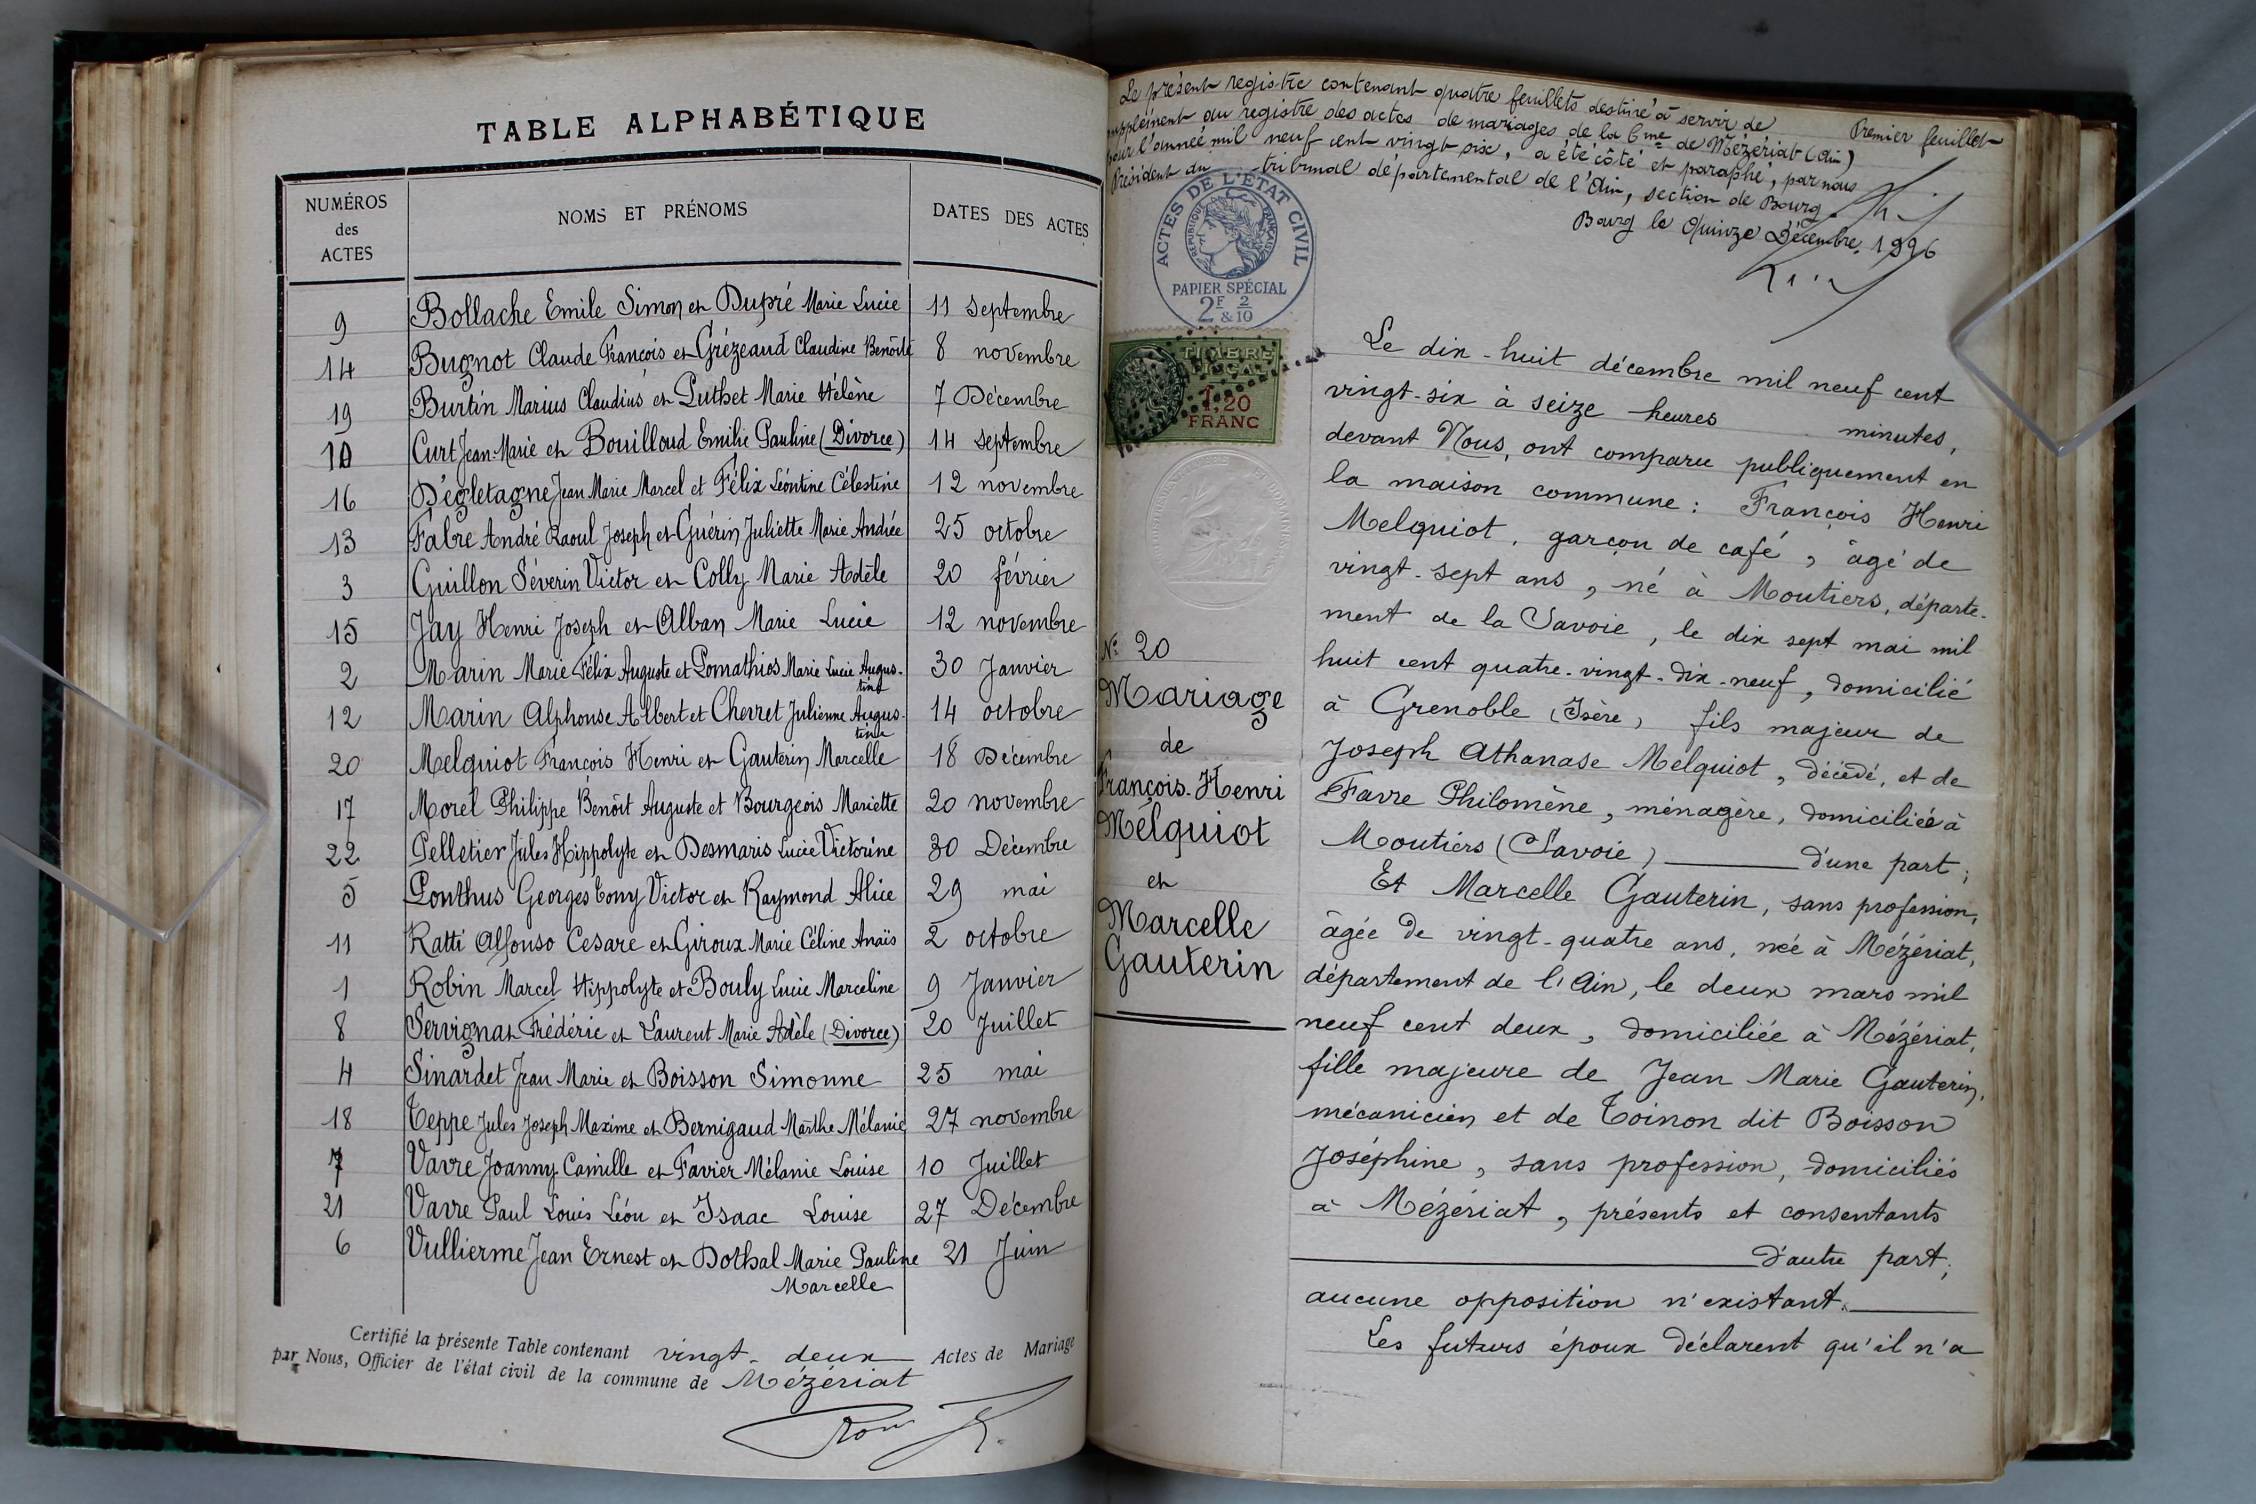 TABLE ALPHABÉTIQUE
NUMÉROS des ACTES NOMS ET PRÉNOMS DATES DES ACTES
9 Bollache Emile Simon et Dupré Marie Lucie 11 septembre
14 Bugnot Claude François et Grézeaud Claudine Benoîte 8 novembre
19 Burtin Marius Claudius et Puthet Marie Hélène 7 Décembre
10 Curt Jean-Marie et Bouilloud Emilie Pauline (Divorce) 14 septembre
16 Dégletagne Jean Marie Marcel et Félix Léontine Célestine 12 novembre
13 Fabre André Raoul Joseph et Guérin Juliette Marie Andrée 25 octobre
3 Guillon Séverin Victor et Colly Marie Adèle 20 février
15 Jay Henri Joseph et Alban Marie Lucie 12 novembre
2 Marin Marie Félix Auguste et Pomathios Marie Lucie Augus-
tine 30 Janvier
12 Marin Alphonse Albert et Chervet Julienne Augus-
tine 14 octobre
20 Melquiot François Henri et Gauterin Marcelle 18 Décembre
17 Morel Philippe Benoît Auguste et Bourgeois Mariette 20 novembre
22 Pelletier Jules Hippolyte et Desmaris Lucie Victorine 30 Décembre
5 Ponthus Georges Tony Victor et Raymond Alice 29 mai
11 Ratti Alfonso Cesare et Giroux Marie Céline Anaïs 2 octobre
1 Robin Marcel Hippolyte et Bouly Lucie Marceline 9 Janvier
8 Servignat Frédéric et Laurent Marie Adèle (Divorce) 20 Juillet
4 Sinardet Jean Marie et Boisson Simonne 25 mai
18 Teppe Jules Joseph Maxime et Bernigaud Marthe Mélanie 27 novembre
7 Vavre Joanny Camille et Favier Mélanie Louise 10 Juillet
21 Vavre Paul Louis Léon et Isaac Louise 27 Décembre
6 Vullierme Jean Ernest et Dothal Marie Pauline
Marcelle 21 Juin
Certifié la présente Table contenant vingt-deux Actes de Mariage
par Nous, Officier de l'état civil de la commune de Mézériat
Le présent registre contenant quatre feuillets destiné à servir de
supplément au registre des actes de mariages de la Cme de Mézériat (Ain)
pour l'année mil neuf cent vingt six, a été côté et paraphé, par nous
Président du tribunal départemental de l'Ain, section de Bourg.
Bourg le Quinze Décembre 1926
Premier feuillet
ACTES DE L'ETAT CIVIL
REPUBLIQUE FRANÇAISE
PAPIER SPÉCIAL
2F & 2/10
TIMBRE
FISCAL
1,20
FRANC
No 20
Mariage
de
François-Henri
Mélquiot
et
Marcelle
Gauterin
Le dix-huit décembre mil neuf cent
vingt-six à seize heures minutes,
devant Nous, ont comparu publiquement en
la maison commune : François Henri
Melquiot, garçon de café, âgé de
vingt-sept ans, né à Moutiers, départe-
ment de la Savoie, le dix sept mai mil
huit cent quatre-vingt-dix-neuf, domicilié
à Grenoble (Isère) fils majeur de
Joseph Athanase Melquiot, décédé, et de
Favre Philomène, ménagère, domiciliée à
Moutiers (Savoie) d'une part ;
Et Marcelle Gauterin, sans profession,
âgée de vingt-quatre ans, née à Mézériat,
département de l'Ain, le deux mars mil
neuf cent deux, domiciliée à Mézériat,
fille majeure de Jean Marie Gauterin,
mécanicien et de Toinon dit Boisson
Joséphine, sans profession, domiciliés
à Mézériat, présents et consentants
d'autre part ;
aucune opposition n'existant.
Les futurs époux déclarent qu'il n'a